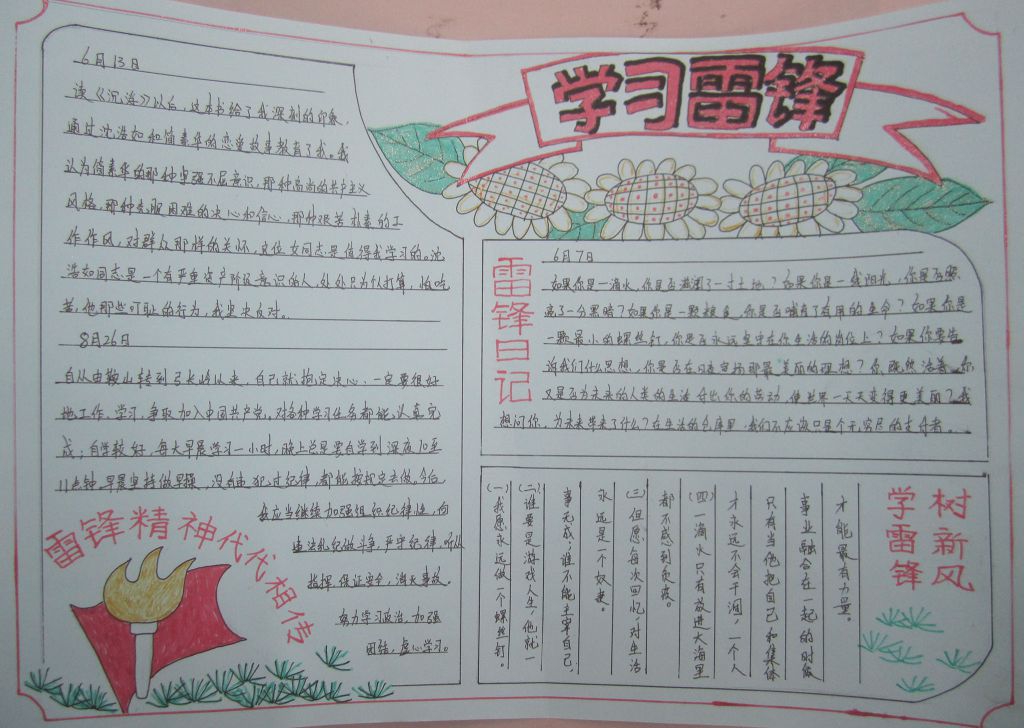 学习雷锋
6月13日
读《沉浮》以后,这本书给了我深刻的印象,
通过沈浩如和简素华的恋爱故事教育了我。我
认为简素华的那种坚强不屈意识,那种高尚的共产主义
风格,那种克服困难的决心和信心,那种艰苦朴素的工
作作风,对群众那样的关怀,这位女同志是值得我学习的。沈
浩如同志是一个有严重资产阶级意识的人,处处只为个人打算,怕吃
苦,他那些可耻的行为,我坚决反对。
8月26日
自从由鞍山转到弓长岭以来,自己就抱定决心,一定要很好
地工作、学习,争取加入中国共产党,对各种学习任务都能认真完
成;自学较好,每天早晨学习一小时,晚上总是要自学到深夜10至
11点钟。早晨坚持做早操,没有违犯过纪律,都能按规定去做。今后
我应当继续加强组织纪律性,向
违法乱纪做斗争,严守纪律,听从
指挥,保证安全,消灭事故。
努力学习政治,加强
团结,虚心学习。
雷锋精神代代相传
雷锋日记
6月7日
如果你是一滴水,你是否滋润了一寸土地?如果你是一线阳光,你是否照
亮了一分黑暗?如果你是一颗粮食,你是否哺育了有用的生命?如果你是
一颗最小的螺丝钉,你是否永远坚守在你生活的岗位上?如果你要告
诉我们什么思想,你是否在日夜宣扬那最美丽的理想?你既然活着,你
又是否为未来的人类的生活付出你的劳动,使世界一天天变得更美丽?我
想问你,为未来带来了什么?在生活的仓库里,我们不应该只是个无穷尽的支付者。
树新风
学雷锋
(一)我愿永远做一个螺丝钉。
(二)谁要是游戏人生,他就一
事无成;谁不能主宰自己,
永远是一个奴隶。
(三)但愿每次回忆,对生活
都不感到负疚。
(四)一滴水只有放进大海里
才永远不会干涸,一个人
只有当他把自己和集体
事业融合在一起的时候
才能最有力量。